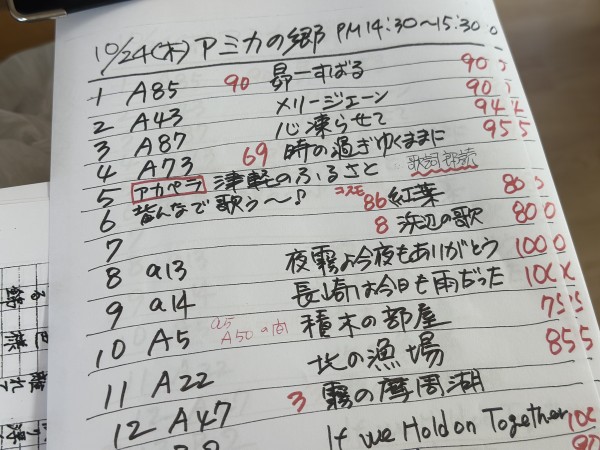 10/24(木) アミカの郷 PM14:30〜15:30
1 A85 90 昴ーすばる 905
2 A43 メリージェーン 905
3 A87 心凍らせて 944
4 A73 69 時の過ぎゆくままに 955
5 アカペラ 津軽のふるさと 歌詞朗読
6 皆んなで歌う〜♪ コスモ 86 紅葉 805
7 8 浜辺の歌 800
8 a13 夜霧よ今夜もありがとう 1000
9 a14 長崎は今日も雨だった
10 A5 a5 A50の前 積木の部屋 755
11 A22 北の漁場 855
12 A47 3 霧の摩周湖
If We Hold on Together